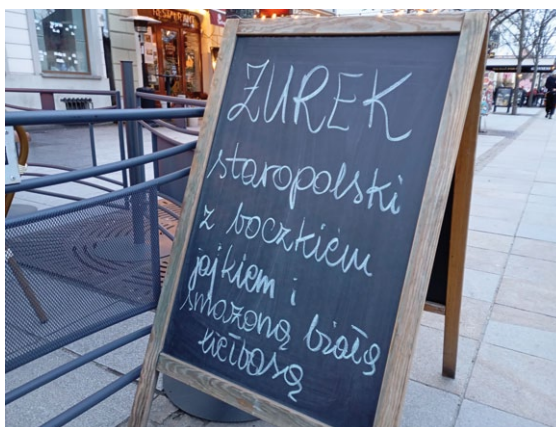 ŻUREK
staropolski
z boczkiem
jajkiem i
smażoną białą
kiełbasą